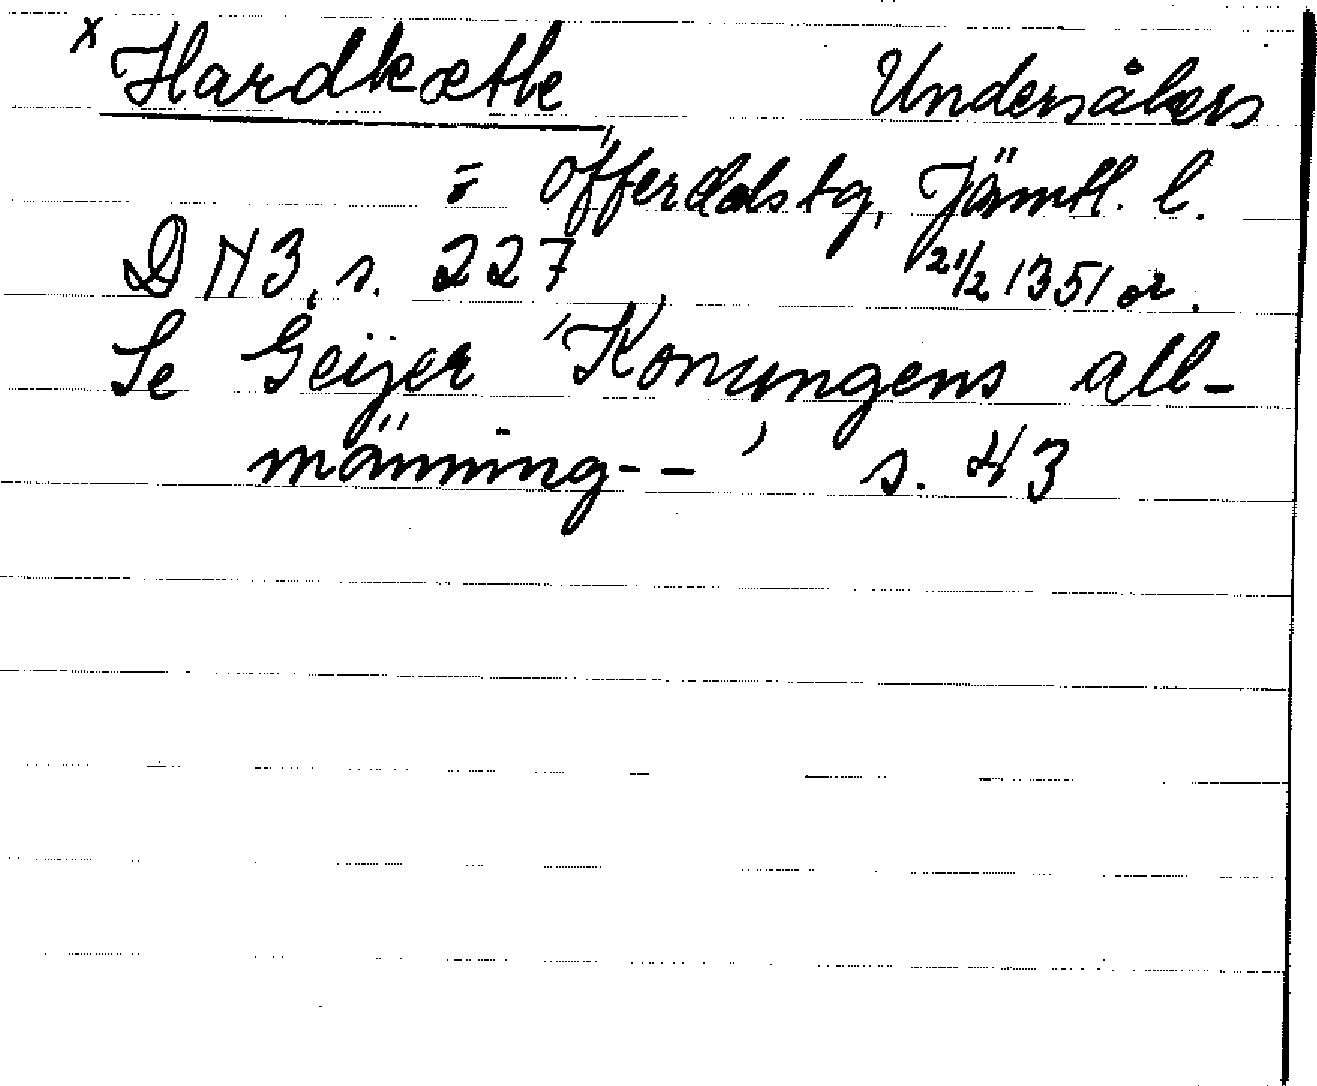 x Hardkætle Undersåkers
= Offerdals tg, Jämtl. l.
DN3, s. 227 21/2 1351 or.
Se Geijer 'Konungens all-
männing--' s. 43